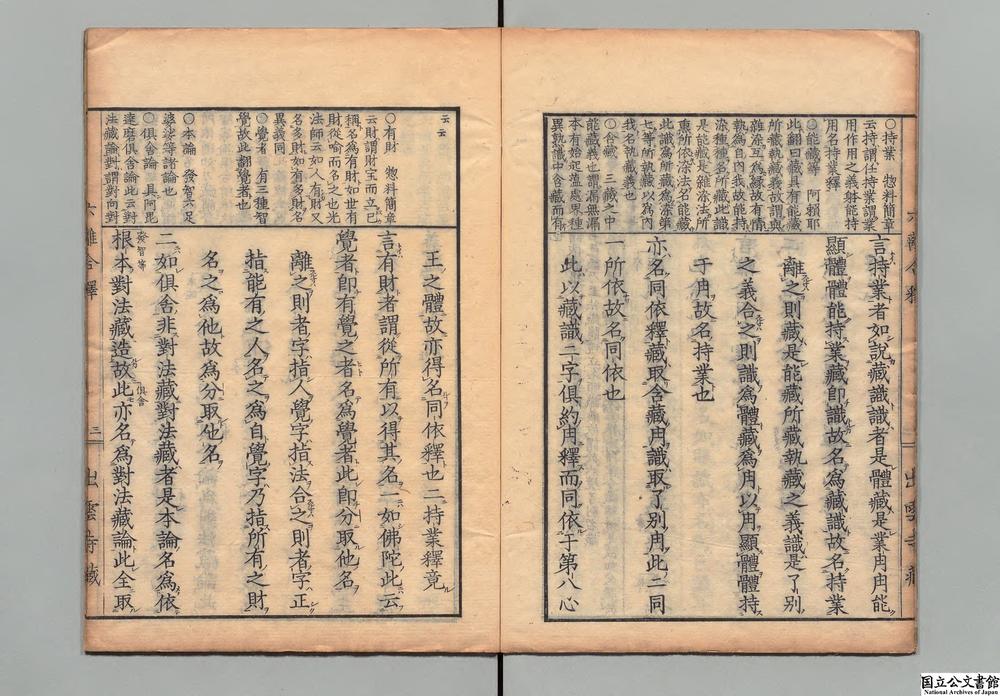 ○持業 惣料簡章
云持謂任持業謂業
用作用之義射能持
用名持業釋
○能藏等 阿賴耶
此翻曰藏具有能藏
所藏執藏義故謂與
雜染互為緣故有情
執為自內我故能持
染種種名所藏此識
是能藏是雜染法所
熏所依染法名能藏
此識為所藏為染第
七等所執藏以為內
我名執藏義也
○含藏 三藏之中
能藏義也謂漏無漏
本有始起蘊處界種
異熟識中含藏而有也
言持業者如說藏識識者是體藏是業用用能
顯體體能持業藏即識故名為藏識故名持業
離之則藏是能藏所藏執藏之義識是了別
之義合之則識為體藏為用以用顯體體持
于用故名持業也
亦名同依釋藏取含藏用識取了別用此二同
一所依故名同依也
此以藏識二字俱約用釋而同依于第八心
六離合釋
出雲寺藏
王之體故亦得名同依釋也二持業釋竟
言有財者謂從所有以得其名一如佛陀此云
覺者即有覺之者名為覺者此即分取他名
離之則者字指人覺字指法合之則者字正
指能有之人名之為自覺字乃指所有之財
名之為他故為分取他名
二如俱舍非對法藏對法藏者是本論名為依
根本對法藏造故此亦名為對法藏論此全取
發智等
俱舍
云云
○有財 惣料簡章
云財謂財宝而立己
稱名為有財如世有
財從喻而名之也光
法師云如人有財又
名多財如有多財名
異義同
○覺者 有三種智
覺故此翻覺者也
○本論 發智六足
婆娑等諸論也
○俱舍論 具阿毘
達磨俱舍論此云對
法藏論對謂對向對
六離合釋
三
出雲寺藏
国立公文書館
National Archives of Japan